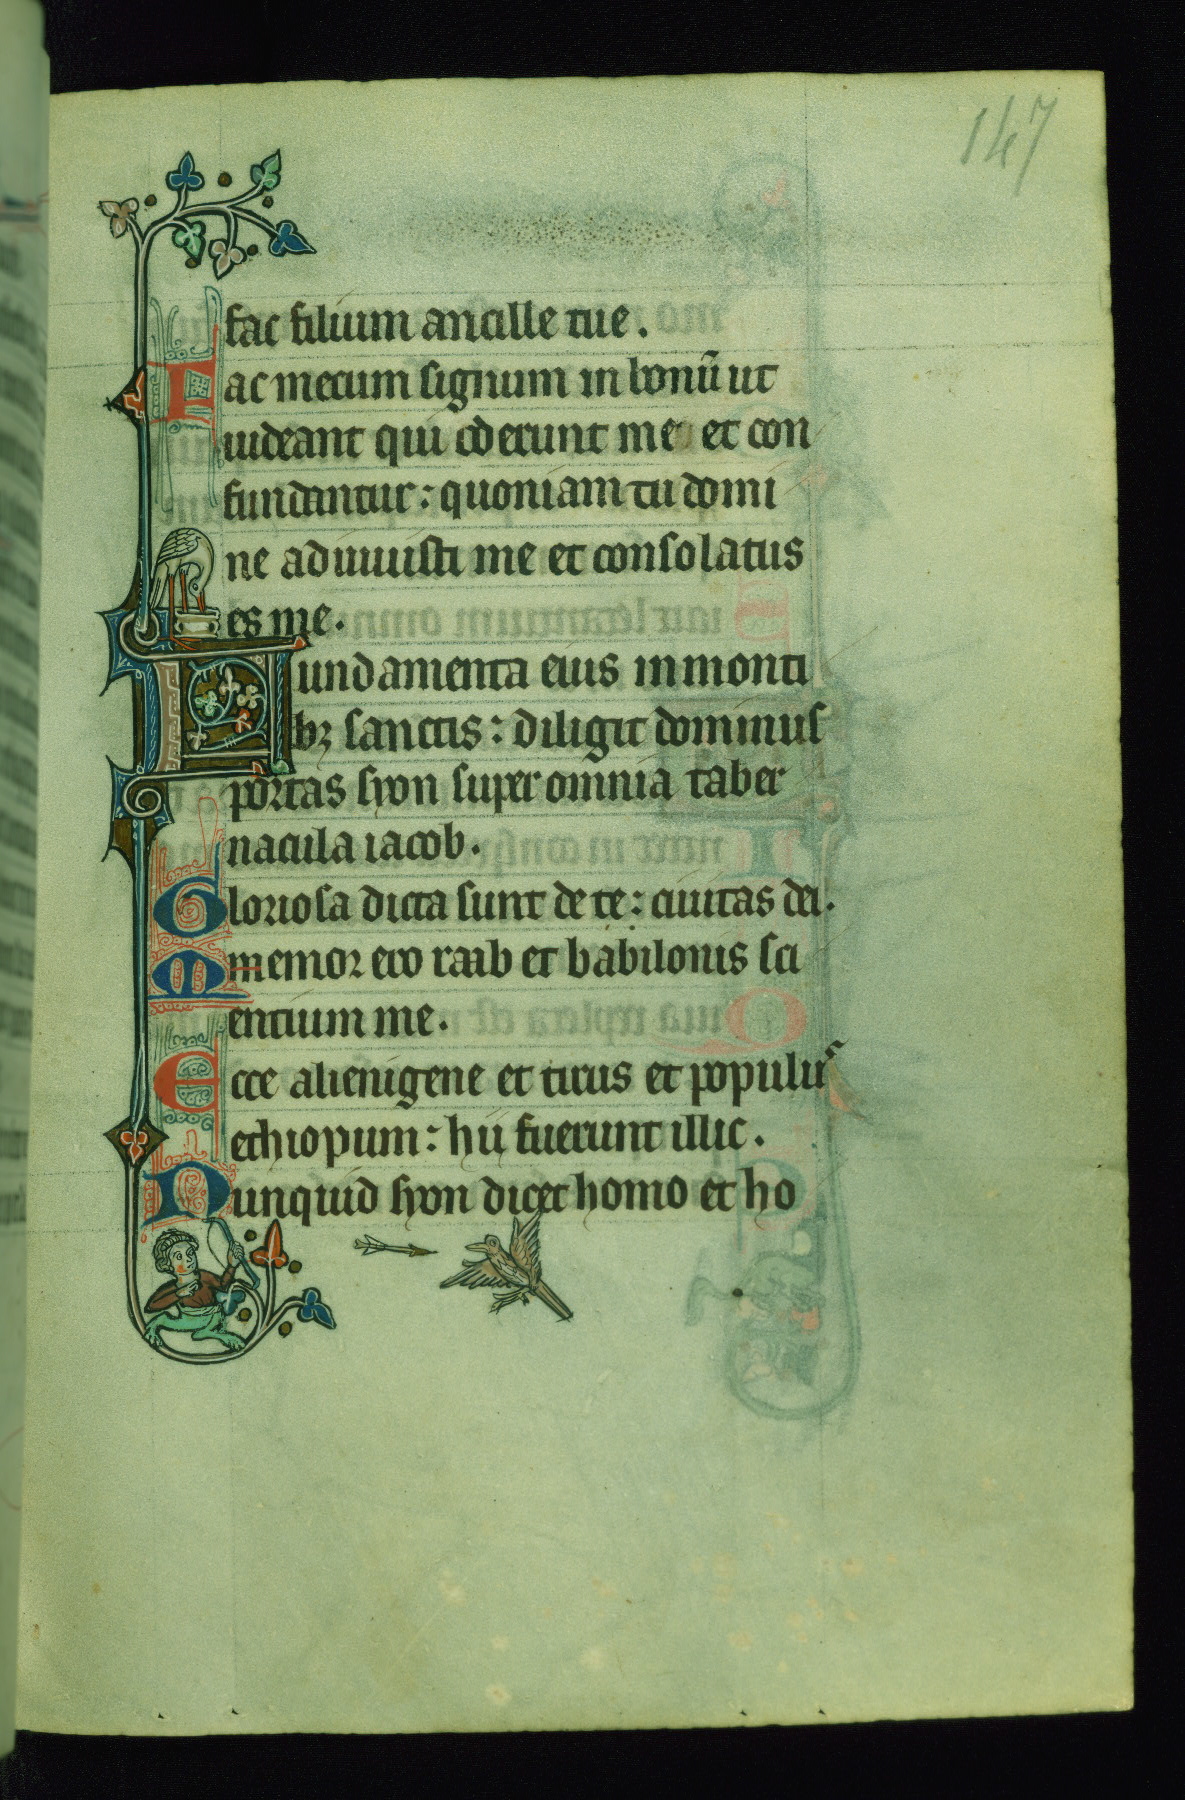 147
fac filium ancille tue.
Fac mecum signum in bonū ut
uideant qui oderunt me et con
fundantur: quoniam tu domi
ne adiuuisti me et consolatus
es me.
Fundamenta eius in monti
bꝫ sanctis: diligit dominus
portas syon super omnia taber
nacula iacob.
Gloriosa dicta sunt de te: ciuitas dei.
Memor ero raab et babilonis sci
entium me.
Ecce alienigene et tirus et populus
ethiopum: hii fuerunt illic.
Nunquid syon dicet homo et ho